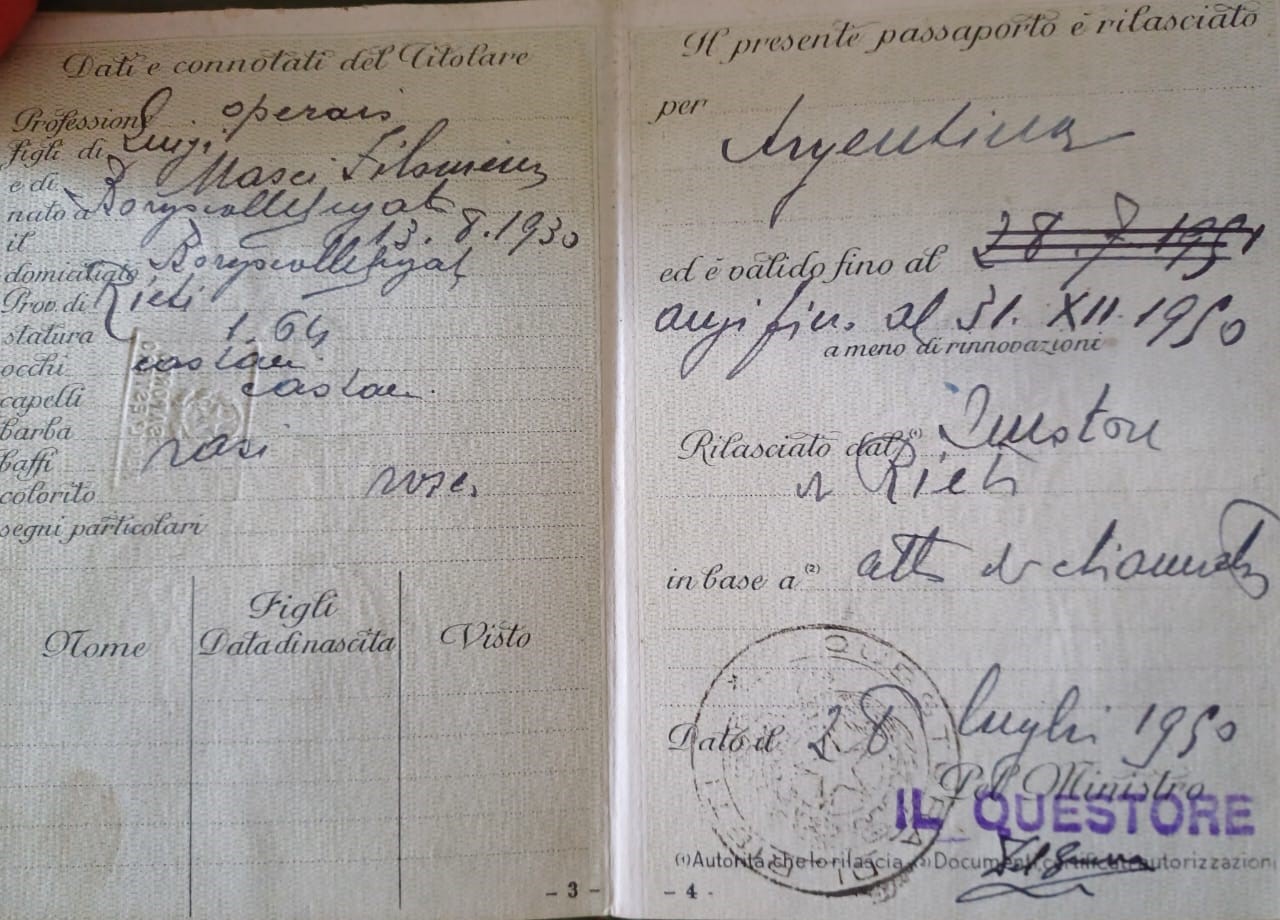 Dati e connotati del Titolare
Professione operaio
figli di Luigi
e di Masci Filomena
nato a Borgocollefegato
il 13.8.1930
domiciliato Borgocollefegato
Prov. di Rieti
statura 1.64
occhi castani
capelli castani
barba
baffi rasi
colorito roseo
segni particolari
Figli
Nome Data di nascita Visto
- 3 -
Il presente passaporto è rilasciato
per Argentina
ed è valido fino al 28.7.1951
anzi fino al 31. XII. 1950
a meno di rinnovazione
Rilasciato dal (1) Questore
di Rieti
in base a (2) atto di chiamata
QUESTURA DI RIETI
Dato il 28 luglio 1950
Pel Ministro
IL QUESTORE
(1) Autorità che lo rilascia (2) Documenti, certificati, autorizzazioni
- 4 -